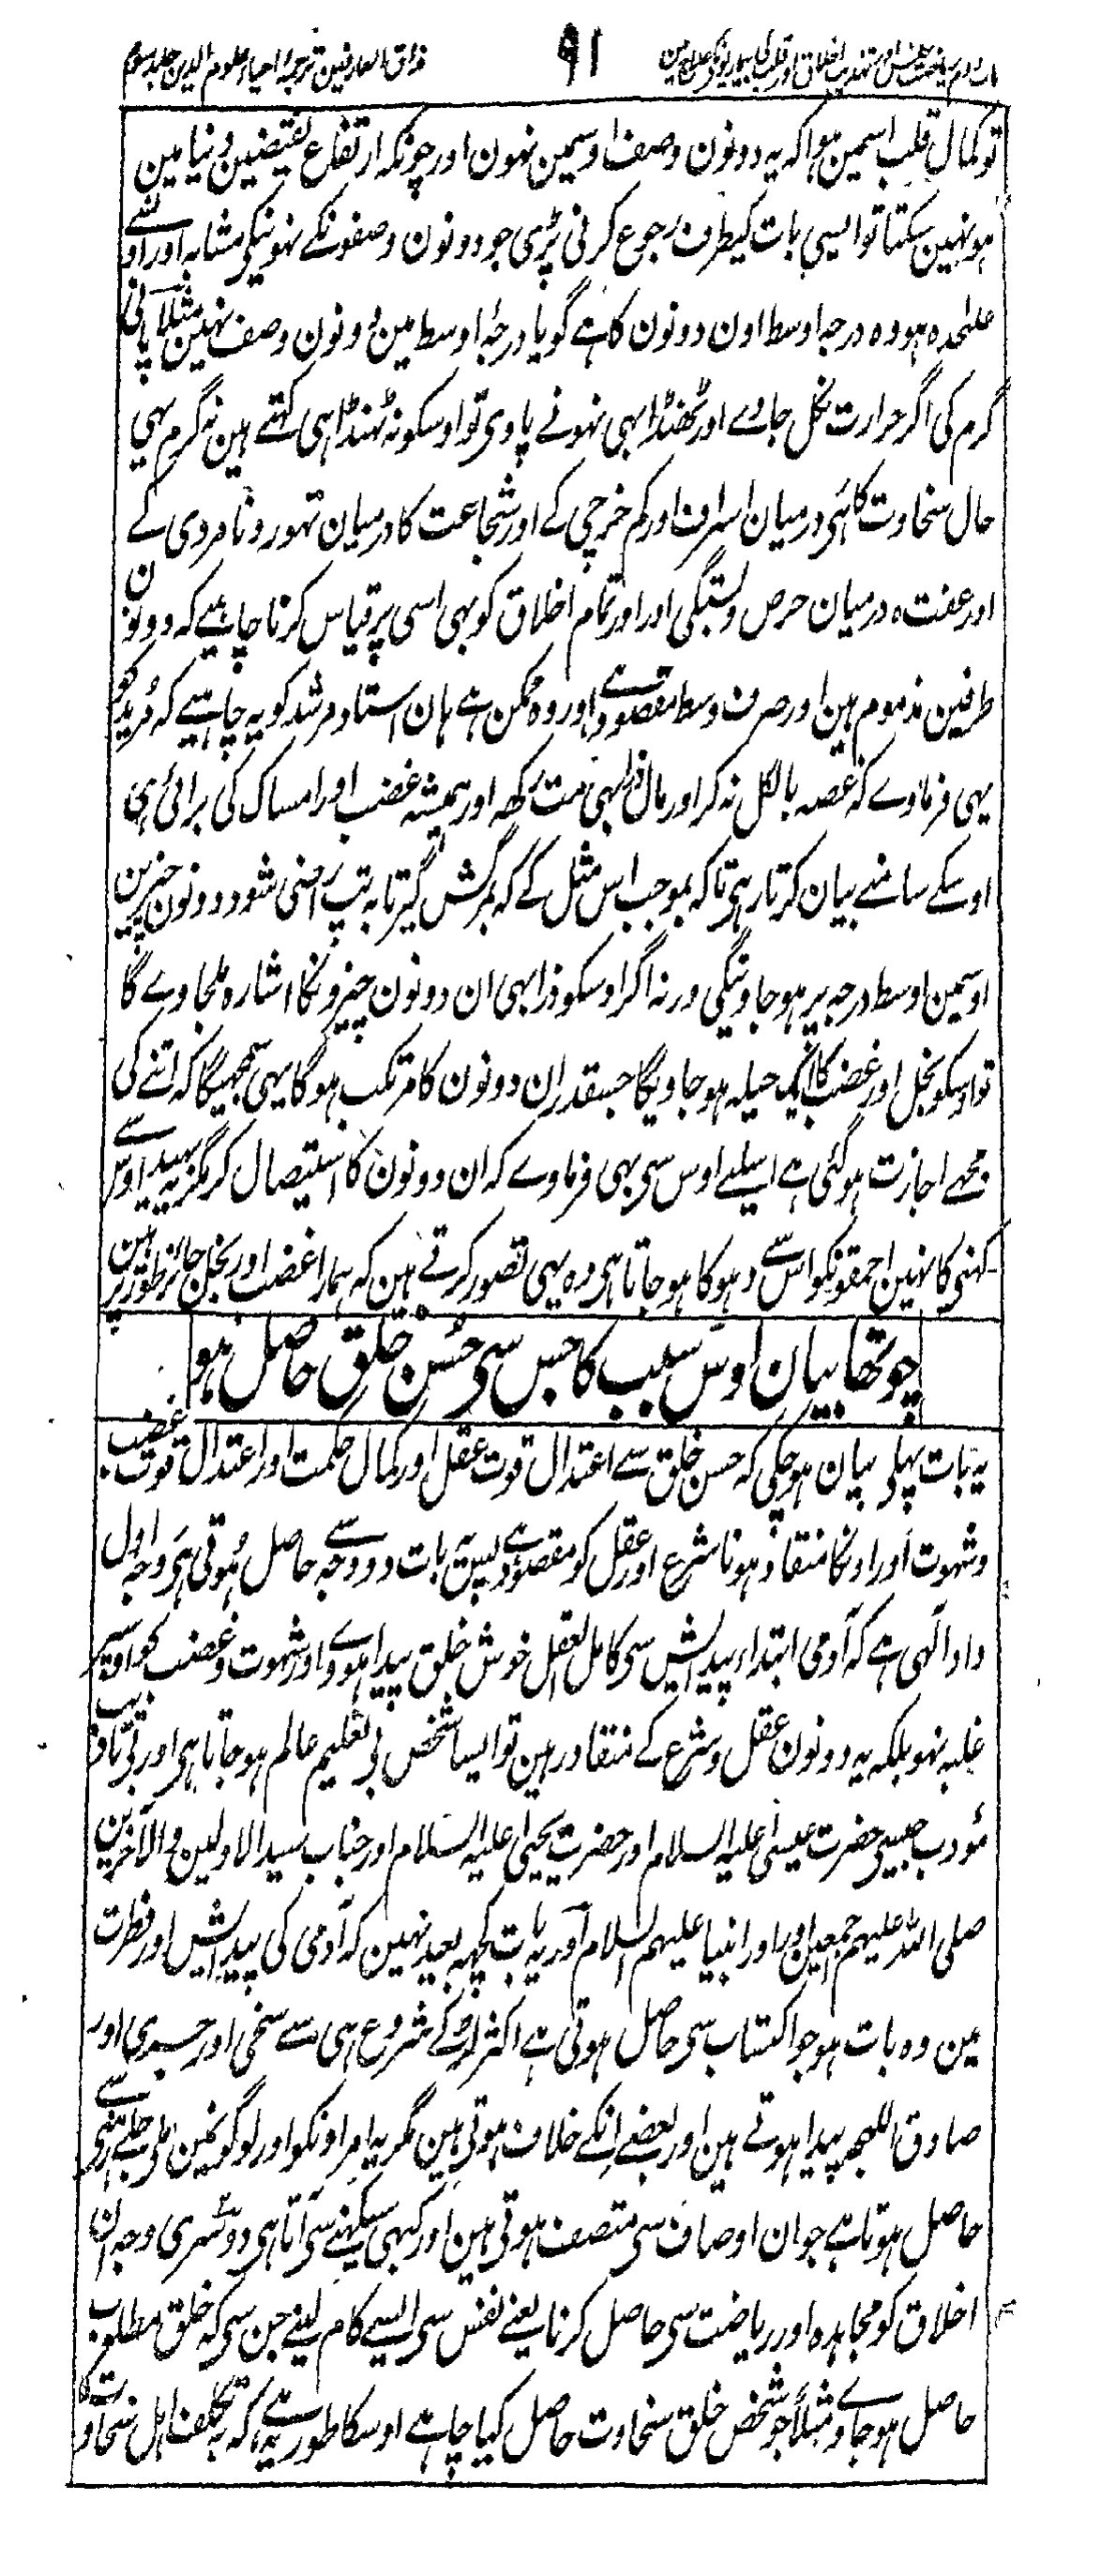 باب دوم ریاضت نفس اور تہذیب اخلاق اور قلب کی بیماریونکے علاج مین
۹۱
مذاق العارفین ترجمہ احیاء علوم الدین جلد سوم
تو کمال قلب اسمین ہوا کہ یہ دونون وصف اوسمین نہون اور چونکہ ارتفاع نقیضین دنیا مین
ہو نہین سکتا تو ایسی بات کیطرف رجوع کرنی پڑی جو دونون وصفونکے نہونیکی مشابہ اور اونسے
علٰحدہ ہو وہ درجہ اوسط اون دونون کا ہے گویا درجہ اوسط مین دونون وصف نہین مثلاً پانی
گرم کی اگر حرارت نکل جاوے اور ٹھنڈا بہی نہونے پاوی تو اوسکو نہ ٹہنڈا ہی کہتے ہین نہ گرم یہی
حال سخاوت کا ہی درمیان اسراف اور کم خرچی کے اور شجاعت کا درمیان تہور و نامردی کے
اور عفت ہ درمیان حرص و بستگی اور اور تمام اخلاق کو بہی اسی پر قیاس کرنا چاہیے کہ دونون
طرفین مذموم ہین اور صرف وسط مقصود ہے اور وہ ممکن ہے ہان استاد مرشد کو یہ چاہیے کہ مرید کو
یہی فرماوے کہ غصہ بالکل نہ کر اور مال ذرا بہی مت رکھ اور ہمیشہ غضب اور امساک کی برائی ہی
اوسکے سامنے بیان کرتا رہی تاکہ بموجب اس مثل کے کہ بمرگش گیر تا بہ تپ راضی شود دونون چیزین
اوسمین اوسط درجہ پر ہو جاوینگی ورنہ اگر اوسکو ذرا بہی ان دونون چیزونکا اشارہ ملجاوے گا
تو اوسکو بخل اور غضب کا ایک حیلہ ہو جاویگا جسقدر ان دونون کا مرتکب ہوگا یہی سمجھیگا کہ اتنے کی
مجھے اجازت ہو گئی ہے اسلیے اوس سی یہی فرماوے کہ ان دونون کا استیصال کر مگر یہ بہید اوس سے
کہنی کا نہین احمقونکو اس سے دہوکا ہو جاتا ہی وہ یہی تصور کرتے ہین کہ ہمارا غضب اور بخل جائز طور پر ہین
چوتھا بیان اوس سبب کا جس سی حُسن خلق حاصل ہو
یہ بات پہلی بیان ہو چکی کہ حسن خلق سے اعتدال قوت عقل اور کمال حکمت اور اعتدال قوت غضب
و شہوت اور اونکا منقاد ہونا شرع اور عقل کو مقصود ہے پس یہ بات دو وجہ سے حاصل ہوتی ہی وجہ اول
داد الٰہی ہے کہ آدمی ابتداء پیدایش سی کامل العقل خوش خلق پیدا ہووے اور شہوت و غضب کو اوسپر
غلبہ نہو بلکہ یہ دونون عقل و شرع کے منقاد رہین تو ایسا شخص بی تعلیم عالم ہو جاتا ہی اور بی تادیب
مؤدب جیسی حضرت عیسیٰ علیہ السلام اور حضرت یحییٰ علیہ السلام اور جناب سید الاولین والآخرین
صلی اللہ علیہم اجمعین اور اور انبیا علیہم السلام اور یہ بات کچہہ بعید نہین کہ آدمی کی پیدایش اور فطرت
مین وہ بات ہو جو اکتساب سی حاصل ہوتی ہے اکثر لڑکے شروع ہی سے سخی اور جری اور
صادق اللہجہ پیدا ہوتے ہین اور بعضے انکے خلاف ہوتی ہین مگر یہ امر اونکو اور لوگونمین ملی جلے رہنی سے
حاصل ہوتا ہے جو ان اوصاف سی متصف ہوتی ہین اور کبہی سیکہنے سی آتا ہی دوسری وجہ ان
اخلاق کو مجاہدہ اور ریاضت سی حاصل کرنا یعنے نفس سی ایسے کام لینے جن سی کہ خلق مطلوب
حاصل ہو جاوے مثلاً جو شخص خلق سخاوت حاصل کیا چاہے اوسکا طور یہ ہے کہ بہ تکلف اہل سخاوت کا